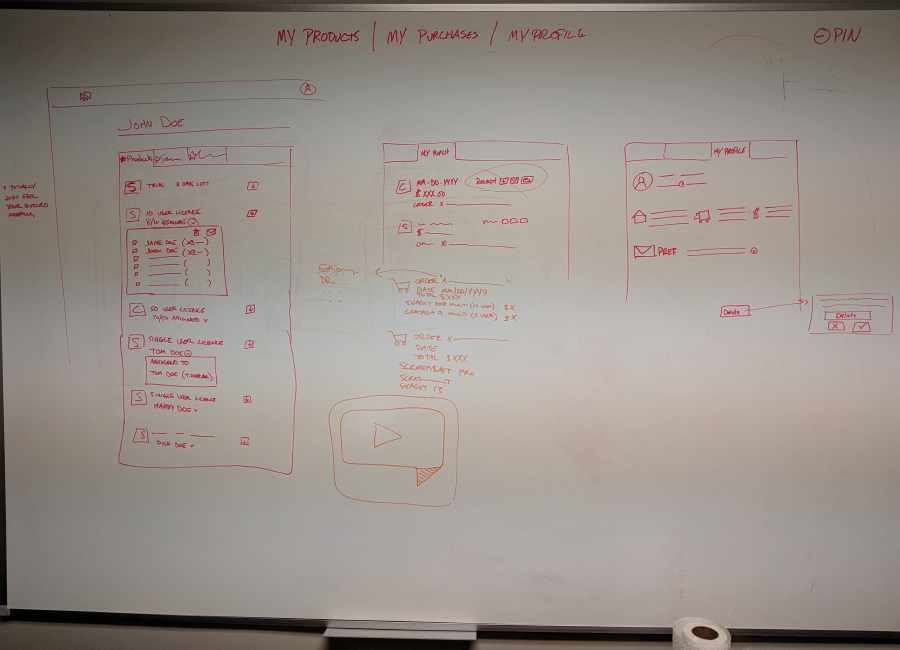 MY PRODUCTS | MY PURCHASES / MY PROFILE
PIN
A
JOHN DOE
Products
TOTALLY
JUST FOR
YOUR RECORD
KEEPING
S TRIAL DAYS LEFT
S 10 USER LICENCE
8/10 ASSIGNED
JANE DOE
JOHN DOE
C 50 USER LICENCE
ASSIGNED
S SINGLE USER LICENCE
TOM DOE
ASSIGNED TO
TOM DOE
S SINGLE USER LICENCE
HARRY DOE
S
DICK DOE
MY PURCH
C MM-DD-YYYY
$ XXX.00
ORDER X
RECEIPT
S
$
X
ORDER
DATE MM/DD/YYYY
TOTAL $XXX
SNAGIT MULTI (10 USER) $X
CAMTASIA 9 MULTI (5 USER) $X
ORDER X
DATE
TOTAL $XXX
SCREENCAST PRO
SNAGIT 13
MY PROFILE
A
$
PREF
Delete
Delete
X